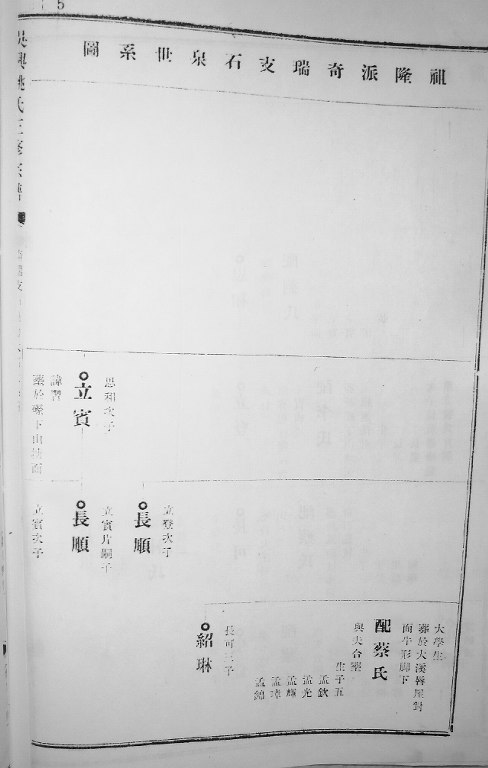 5
祖隆派奇瑞支石泉世系圖
大學生
葬於大溪唇屋對
面牛形腳下
配蔡氏
與夫合塟
生子五
孟欽
孟光
孟輝
孟璋
孟錦
長可三子
紹琳
立登次子
長順
立賓片嗣子
長順
立賓次子
思和次子
立賓
諱書
吳興姚氏三修宗譜